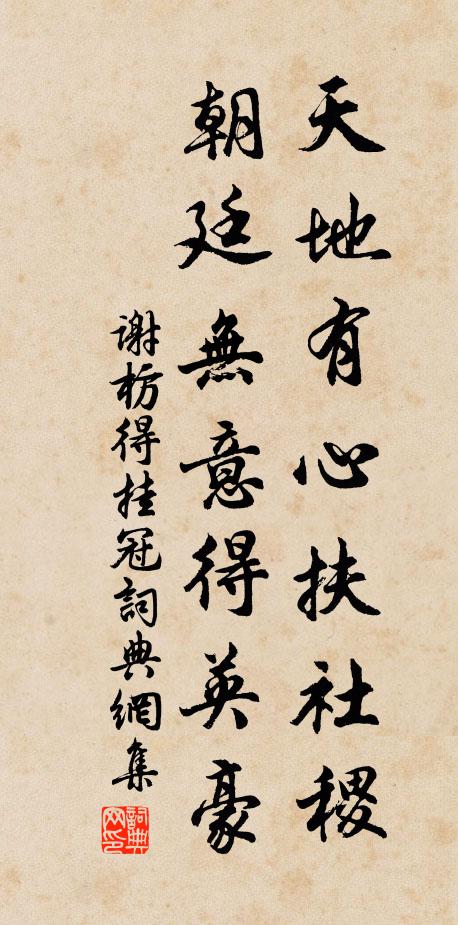 天地有心扶社稷
朝廷無意得英豪
謝枋得挂冠詞典網集
詞典网印